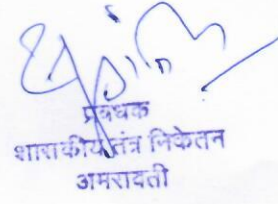 प्रबंधक
शासकीय तंत्र निकेतन
अमरावती